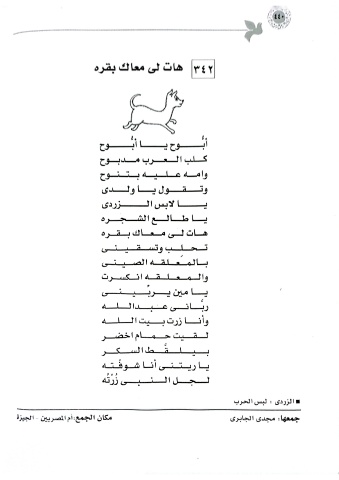 ٤٤٠
٣٤٢ هات لى معاك بقره
أبُّوح يا أبُّوح
كلب العرب مدبوح
وامه عليه بتنوح
وتقول يا ولدى
يا لابس الزردى
يا طالع الشجره
هات لى معاك بقره
تحلِب وتسقينى
بالمعلقه الصينى
والمعلقه انكسرت
يا مين يربِّينى
ربَّانى عبدالله
وأنا زرت بيت الله
لقيت حمام اخضر
بيلقَّط السكر
يا ريتنى أنا شوفْته
لجل النبى زُرْتُه
■ الزردى : لبس الحرب
جمعها: مجدى الجابرى
مكان الجمع: أم المصريين - الجيزة